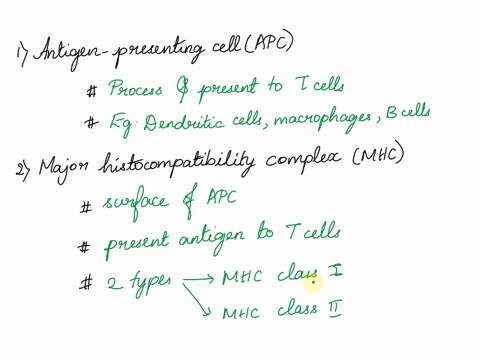 1) Antigen-presenting cell (APC)
# Process & present to T cells
# Eg: Dendritic cells, macrophages, B cells
2) Major histocompatibility complex (MHC)
# surface of APC
# present antigen to T cells
# 2 types → MHC class I
→ MHC class II